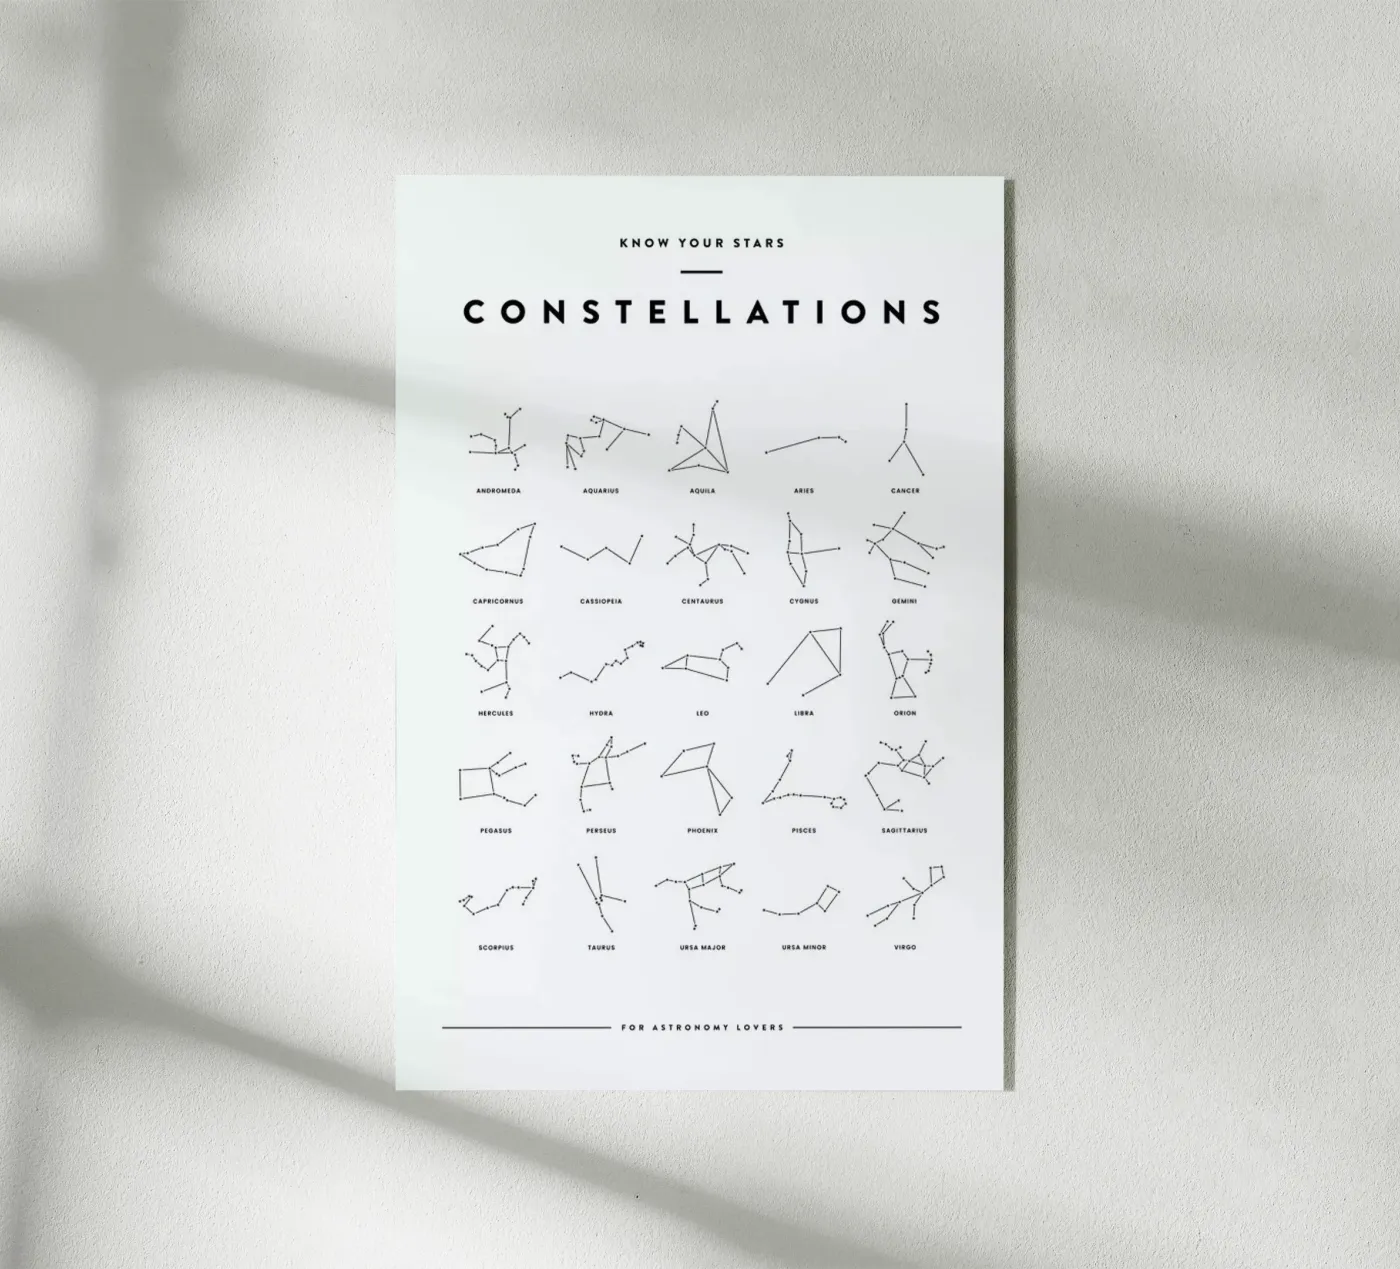 KNOW YOUR STARS
CONSTELLATIONS
ANDROMEDA AQUARIUS AQUILA ARIES CANCER
CAPRICORNUS CASSIOPEIA CENTAURUS CYGNUS GEMINI
HERCULES HYDRA LEO LIBRA ORION
PEGASUS PERSEUS PHOENIX PISCES SAGITTARIUS
SCORPIUS TAURUS URSA MAJOR URSA MINOR VIRGO
FOR ASTRONOMY LOVERS